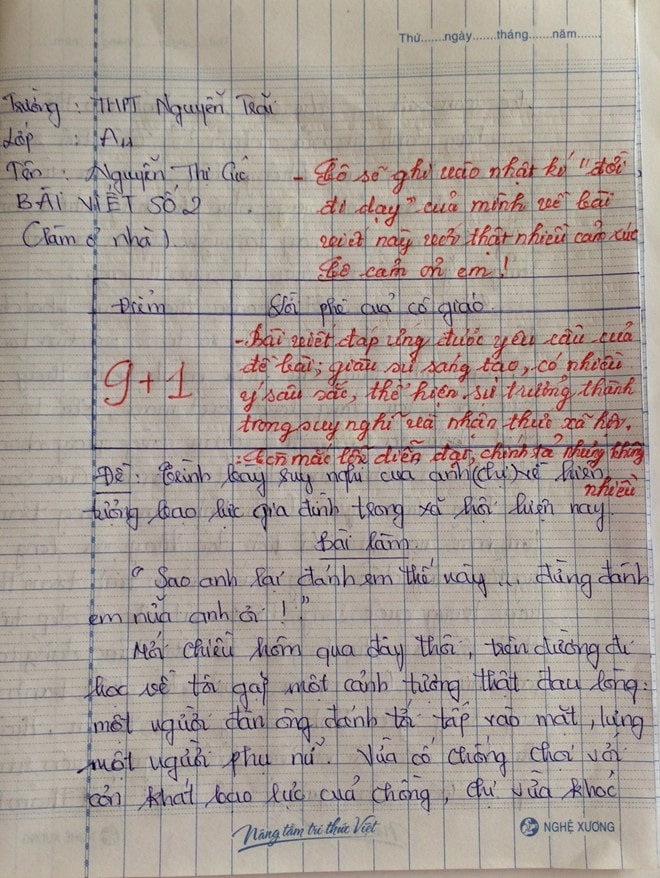 Thứ......ngày......tháng......năm......
Trường : THPT Nguyễn Trãi
Lớp : A11
Tên : Nguyễn Thị Cúc
- Cô sẽ ghi vào nhật kí "đời
BÀI VIẾT SỐ 2
đi dạy" của mình về bài
(Làm ở nhà).
viết này với thật nhiều cảm xúc
Cô cảm ơn em!
Điểm
Lời phê của cô giáo
9+1
- Bài viết đáp ứng được yêu cầu của
đề bài; giàu sự sáng tạo, có nhiều
ý sâu sắc, thể hiện sự trưởng thành
trong suy nghĩ và nhận thức xã hội.
- Còn mắc lỗi diễn đạt, chính tả nhưng không
nhiều
Đề : Trình bày suy nghĩ của anh (chị) về hiện
tượng bạo lực gia đình trong xã hội hiện nay.
Bài làm.
" Sao anh lại đánh em thế này ... đừng đánh
em nữa anh ơi ! "
Mới chiều hôm qua đây thôi, trên đường đi
học về tôi gặp một cảnh tượng thật đau lòng:
một người đàn ông đánh tới tấp vào mặt, lưng
một người phụ nữ. Vừa cố chống chọi với
cơn khát bạo lực của chồng, chị vừa khóc
Nâng tầm tri thức Việt
NGHỆ XƯƠNG